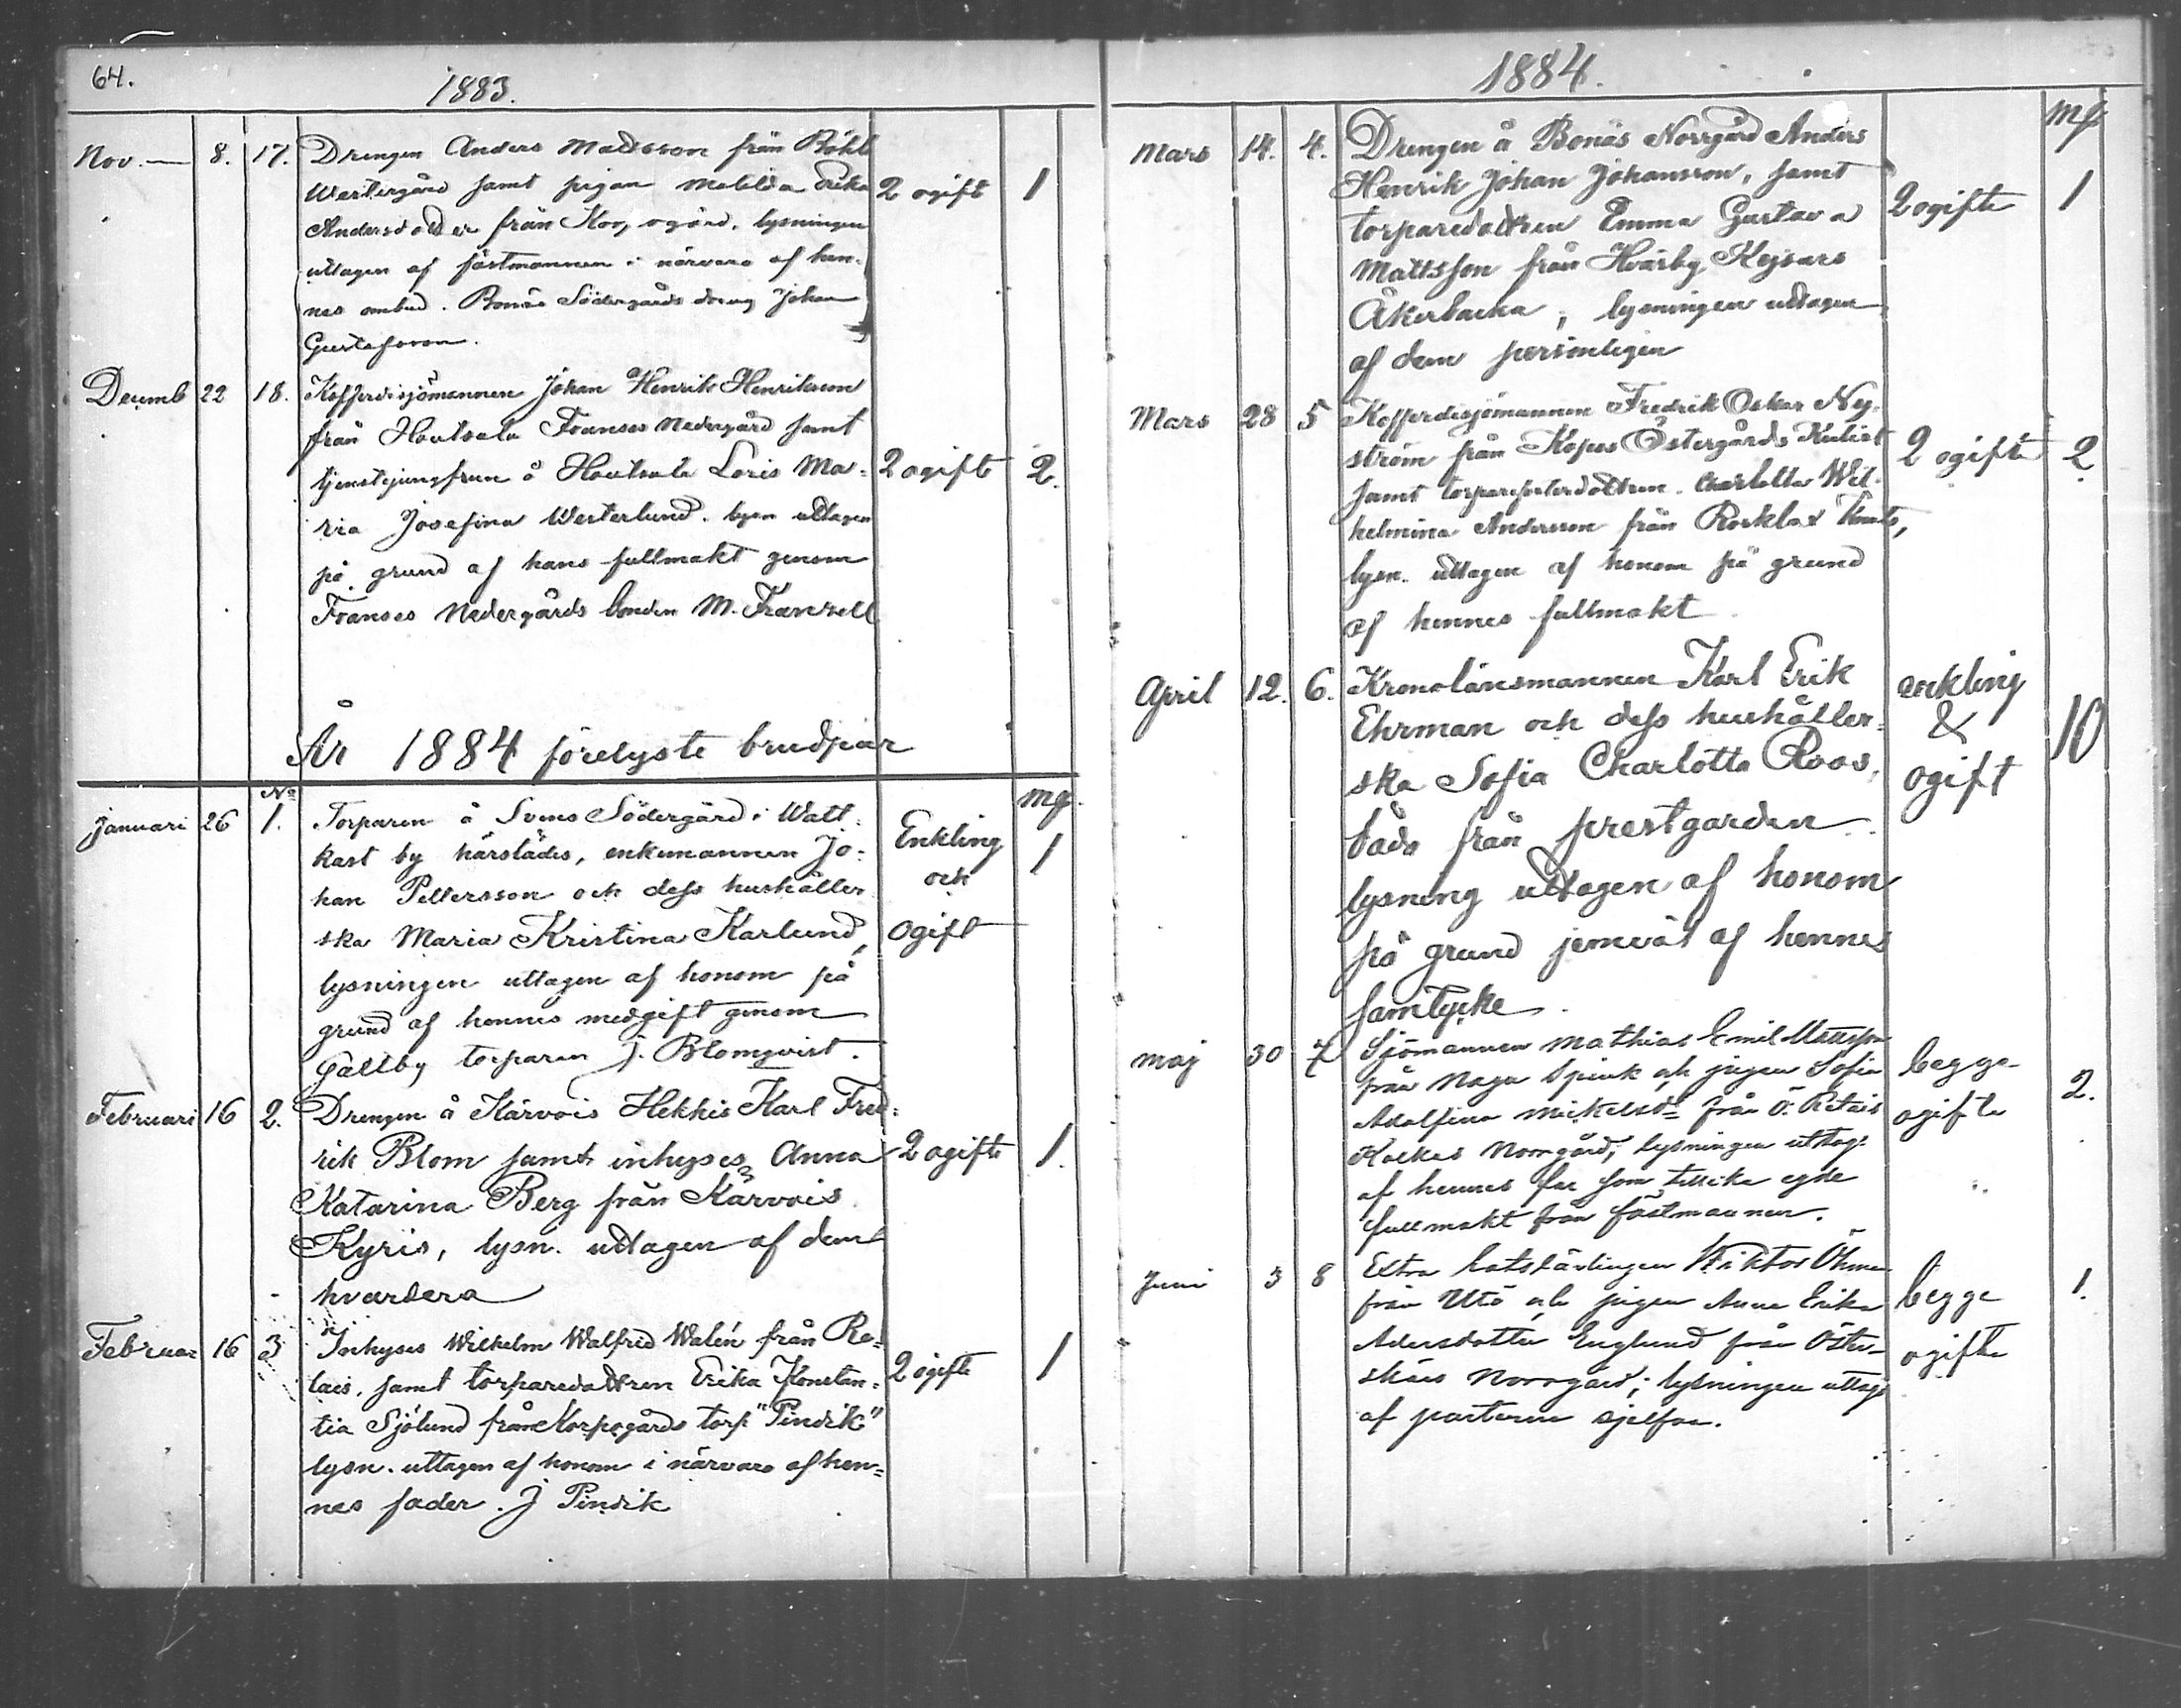 64.
1883.
Nov. — 8. 17. Drengen Anders Mattsson från
Westergård samt pigan Matilda Erika 2 ogift 1
Andersdotter från lysningen
uttagen af fästmannen i närvaro af hen-
nes ombud. Bonäs Södergårds dreng Johan
Gustafsson.
Decemb 22 18. Kofferdisjömannen Johan Henrik Henriksson
från Houtsala Franses Nedergård samt
tjenstejungfrun å Houtsala Loris Ma- 2 ogifte 2.
ria Josefina Westerlund. lysn uttagen
på grund af hans fullmakt genom
Franses Nedergårds bonden M. Franzell
År 1884 förelyste brudpar
No mg.
Januari 26 1. Torparen å Svens Södergård i Watt-
kast by härstädes, enkemannen Jo- Enkling 1
han Pettersson och dess hushåller och
ska Maria Kristina Karlund, ogift
lysningen uttagen af honom på
grund af hennes medgift genom
Gällby torparen J. Blomqvist.
Februari 16 2. Drengen å Kärvois Hekkis Karl Fred-
rik Blom samt inhyses Anna 2 ogifte 1.
Katarina Berg från Kärvois
Kyris, lysn. uttagen af dem
hvardera
Februar 16 3 Inhyses Wilhelm Walfrid Walén från Re-
tais, samt torparedottren Erika Konstan- 2 ogifte 1
tia Sjölund från Korpogårds torp "Pindik"
lysn. uttagen af honom i närvaro af hen-
nes fader. J Pindik
1884.
mg
Mars 14. 4. Drengen å Bonäs Norrgård Anders
Henrik Johan Johansson, samt 2 ogifte 1
torparedottren Emma Gustava
Mattsson från Hvarby Kejsars
Åkerbacka, lysningen uttagen
af dem personligen
Mars 28 5 Kofferdisjömannen Fredrik Oskar Ny-
ström från Kopus Östergårds 2 ogifte 2
samt Charlotta Wil-
helmina Andersson från Rosklax
lysn. uttagen af honom på grund
af hennes fullmakt
April 12. 6. Kronolänsmannen Karl Erik enkling
Ehrman och dess hushåller- & 10
ska Sofia Charlotta Roos, ogift
båda från prestgården
lysning uttagen af honom
på grund jemväl af hennes
samtycke.
Maj 30 7 Sjömannen Mathias Emil Mattsson begge
från Nagu Spink och pigan Sofia
Adolfina Mickelsdr från Ö. Retais ogifte 2.
Norrgård; lysningen uttag.
af hennes far som tillika egde
fullmakt från fästmannen.
Juni 3 8 Extra lotslärlingen Wiktor Öhman
från Utö och pigan Anna Erika begge 1.
Adersdotter Englund från Öster-
skärs Norrgård; lysningen uttags ogifte
af parterne sjelfva.